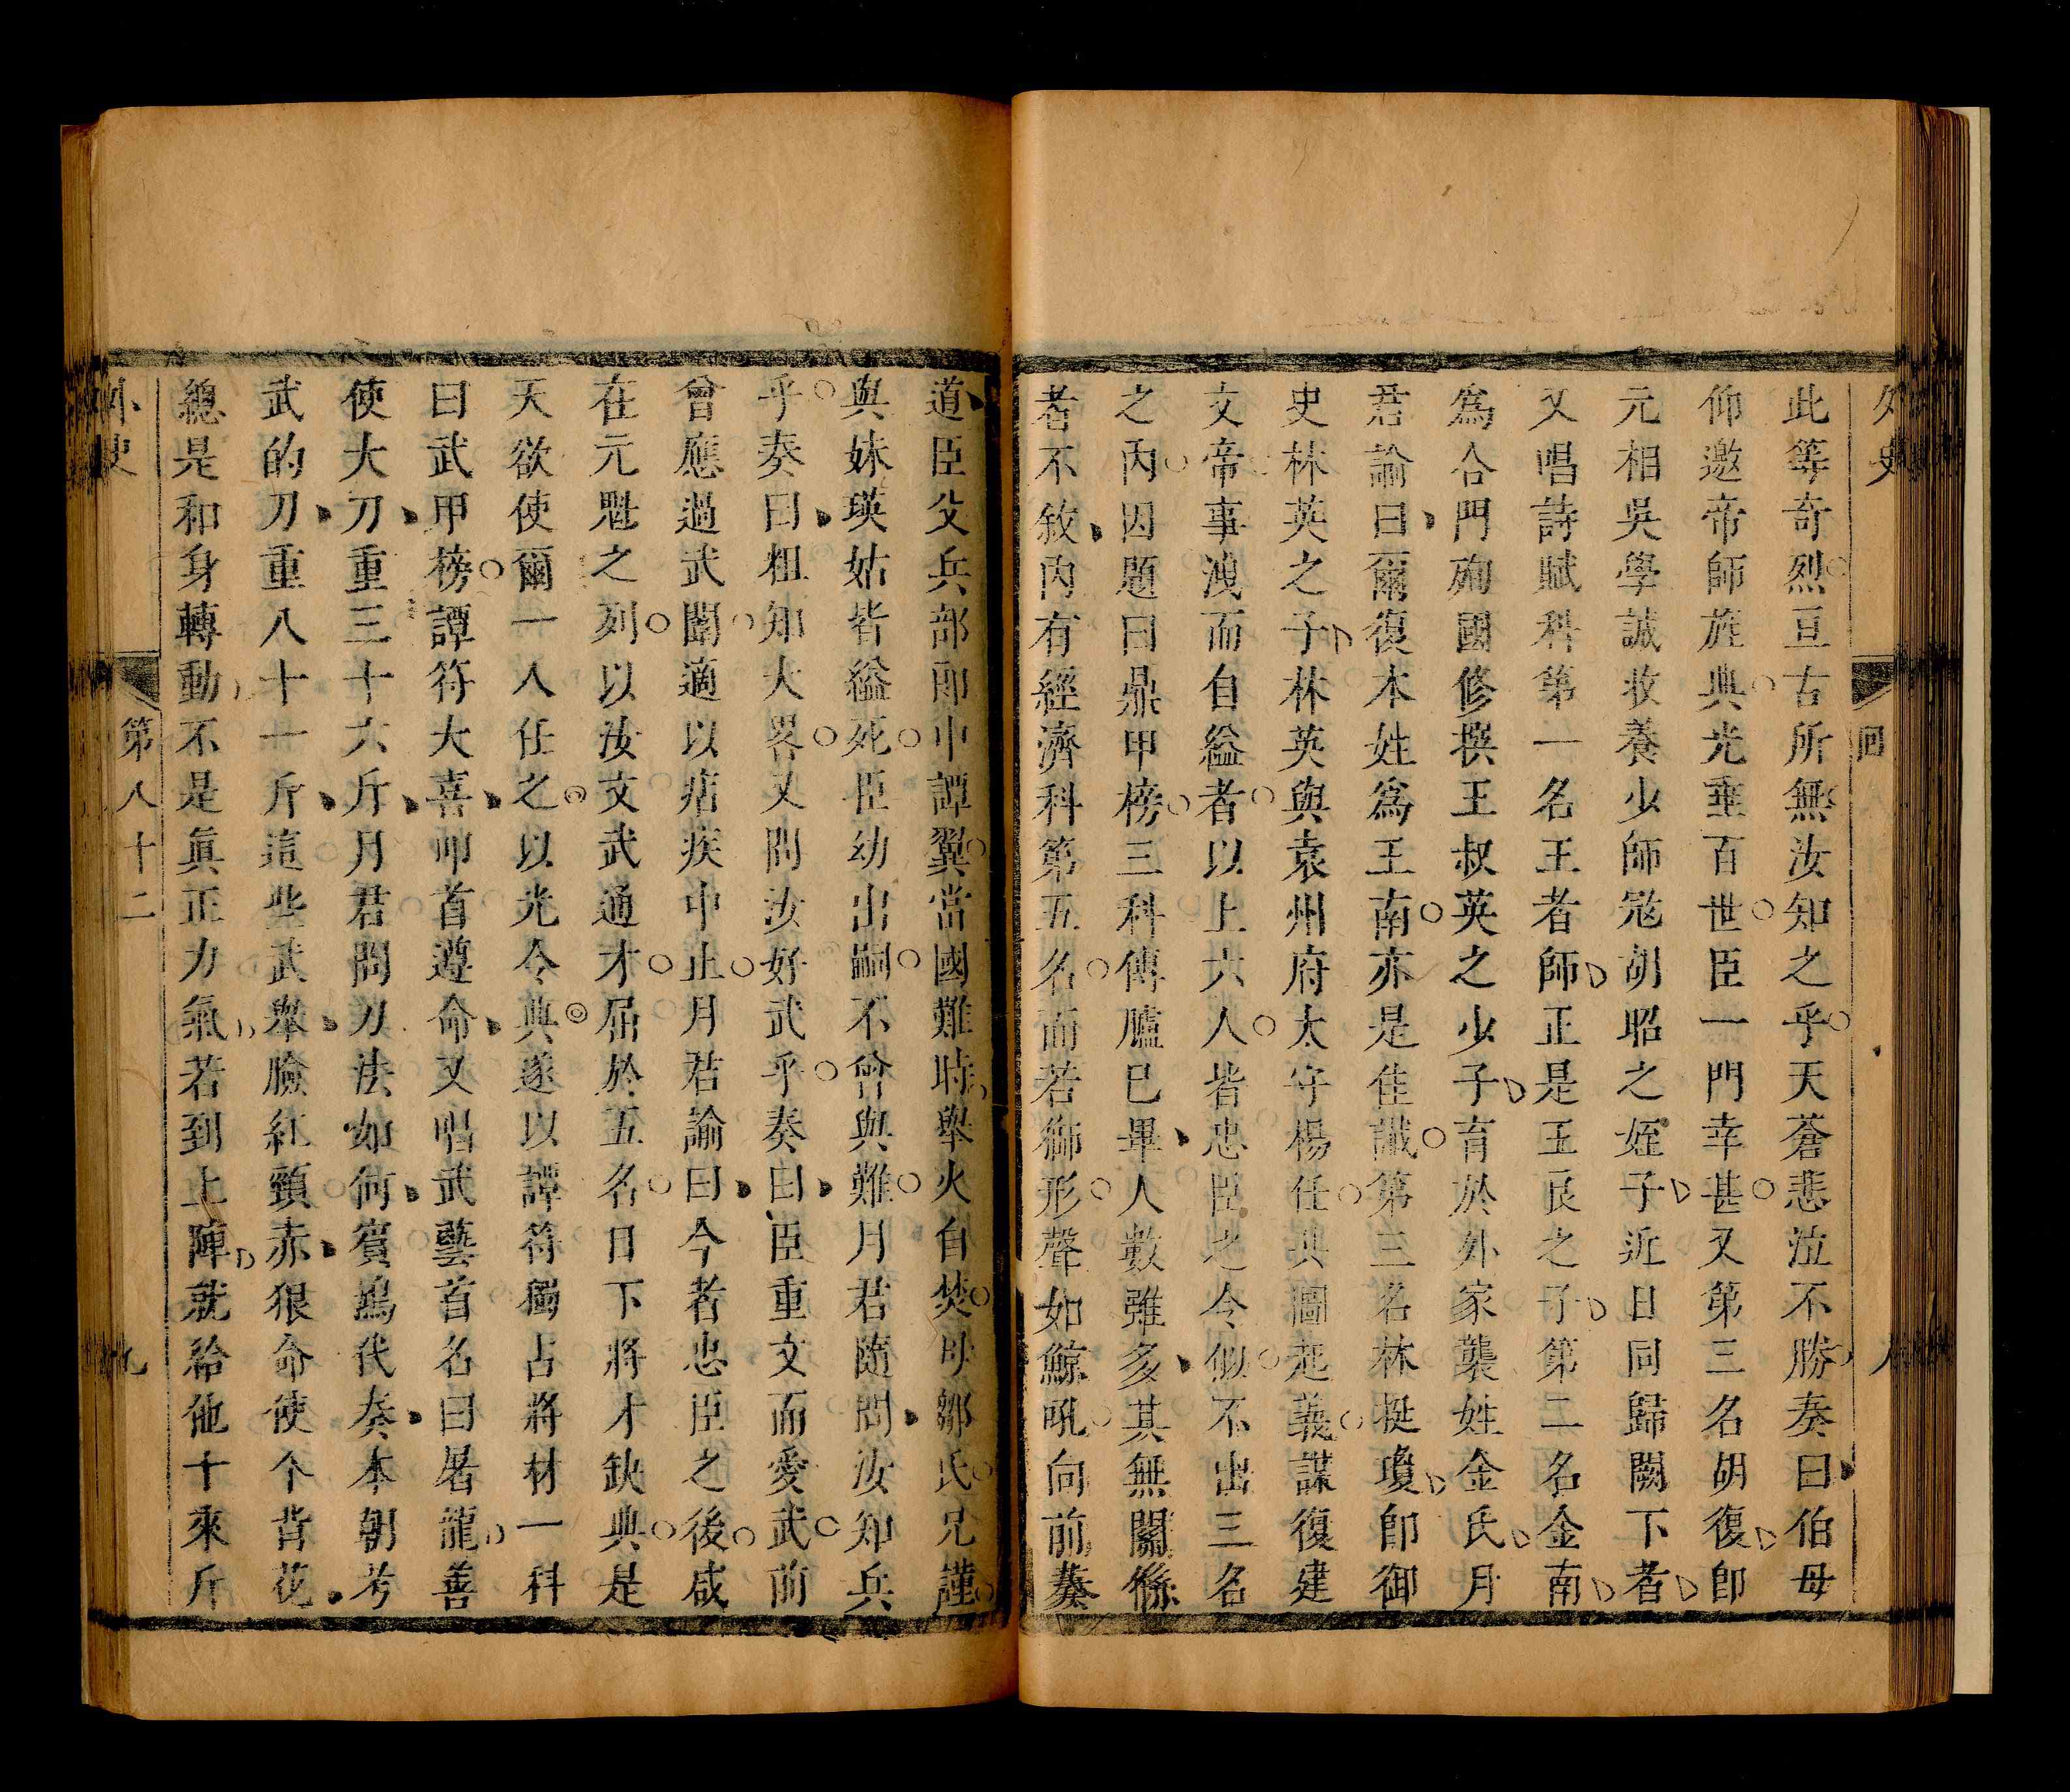 外史
回
八
此等奇烈亘古所無汝知之乎天蒼悲泣不勝奏曰伯母
仰邀帝師旌典光垂百世臣一門幸甚又第三名胡復卽
元相吳學誠收養少師冦胡昭之姪子近日同歸闕下者
又唱詩賦科第一名王者師正是王良之子第二名金南
爲合門殉國修撰王叔英之少子育於外家襲姓金氏月
君諭曰爾復本姓爲王南亦是佳讖第三名林挺瓊卽御
史林英之子林英與袁州府太守楊任共圖起義謀復建
文帝事洩而自縊者以上六人皆忠臣之今似不出三名
之內因題曰鼎甲榜三科傳臚已畢人數雖多其無關係
者不敘內有經濟科第五名而若獅形聲如鯨吼向前奏
道臣父兵部郎中譚翼當國難時舉火自焚母鄒氏兄謹
與妹瑛姑皆縊死臣幼出嗣不曾與難月君隨問汝知兵
乎奏曰粗知大畧又問汝好武乎奏曰臣重文而愛武前
曾應過武闈適以痁疾中止月君諭曰今者忠臣之後咸
在元魁之列以汝文武通才屈於五名日下將才缺典是
天欲使爾一人任之以光令典遂以譚符獨占將材一科
曰武甲榜譚符大喜叩首遵命又唱武藝首名曰暑龍善
使大刀重三十六斤月君問刀法如何賓鴻代奏本朝考
武的刀重八十一斤這些武舉臉紅頸赤狠命使个背花
總是和身轉動不是眞正力氣若到上陣就給他十來斤
外史
第八十二
九